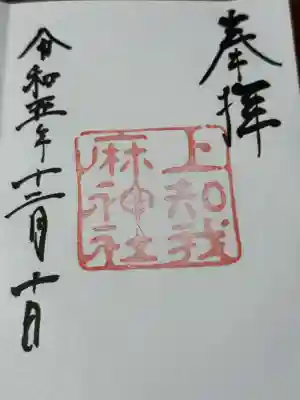 奉拝
上知我
麻神社
令和五年十二月十日